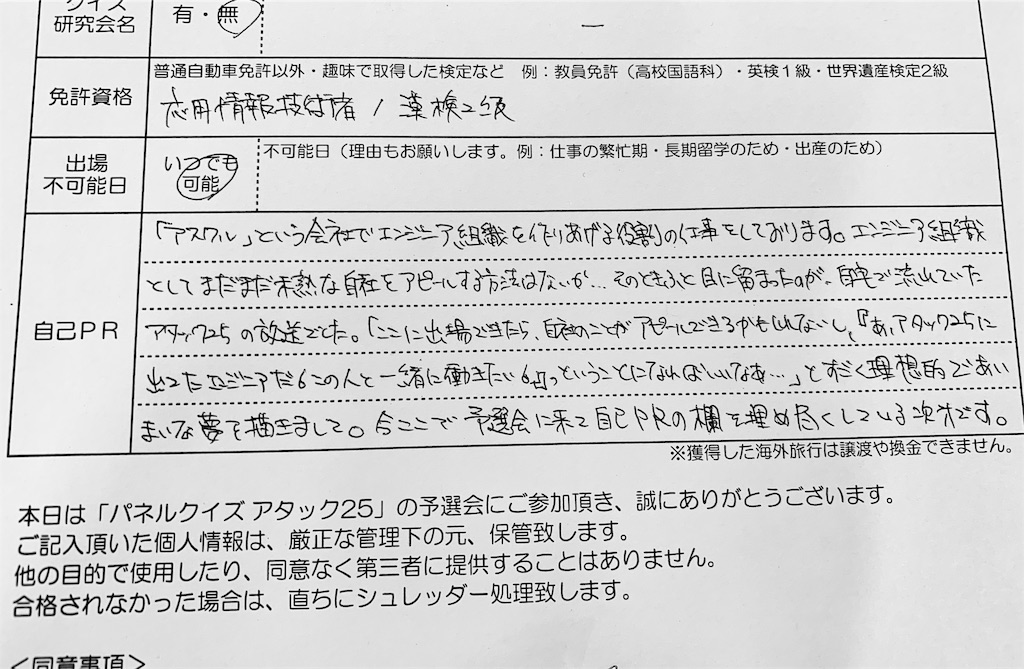 クイズ
研究会名
有・無
ー
免許資格
普通自動車免許以外・趣味で取得した検定など 例：教員免許（高校国語科）・英検１級・世界遺産検定2級
応用情報技術者 / 漢検2級
出場
不可能日
いつでも
可能
不可能日（理由もお願いします。例：仕事の繁忙期・長期留学のため・出産のため）
自己ＰＲ
「アスクル」という会社でエンジニア組織を作りあげる役割の仕事をしております。エンジニア組織
としてまだまだ未熟な自社をアピールする方法はないか…そのときふと目に留まったのが、自宅で流れていた
アタック25の放送でした。「ここに出場できたら、自社のことがアピールできるかもしれないし、『あ、アタック25に
出てたエンジニアだ!この人と一緒に働きたい!』ということになればいいなあ…」とすごく理想的であい
まいな夢を描きまして。今ここで予選会に来て自己PRの欄を埋め尽くしている次第です。
※獲得した海外旅行は譲渡や換金できません。
本日は「パネルクイズ アタック25」の予選会にご参加頂き、誠にありがとうございます。
ご記入頂いた個人情報は、厳正な管理下の元、保管致します。
他の目的で使用したり、同意なく第三者に提供することはありません。
合格されなかった場合は、直ちにシュレッダー処理致します。
＜同意事項＞